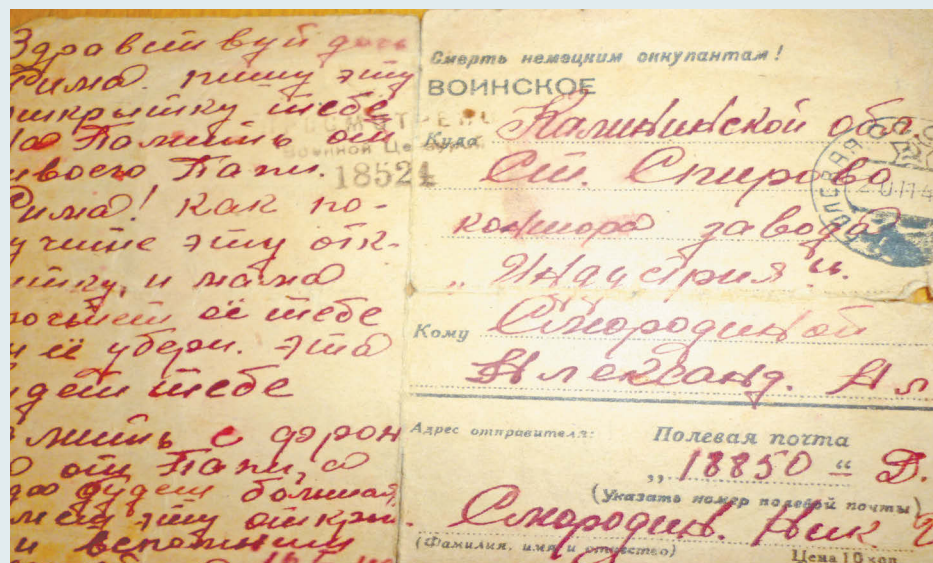 Здравствуй дочь
Рима. пишу эту
ткрытку тебе
на Помить от
твоего Папи.
Рима! как по-
лучите эту отк-
ытку, и мама
рочтет её тебе
её убери. Это
удет тебе
с фрон
от Папи, а
будеш большая
эту откры.
и вспомниш
Смерть немецким оккупантам!
ВОИНСКОЕ
ПРОСМОТРЕНО
Военной Цензурой
18524
Куда Калининской обл
Ст. Спирово
контора завода
„Индустрия".
Кому Смородиной
Александ. Ил
Адрес отправителя: Полевая почта
„18850" Д.
(Указать номер полевой почты)
Смородин. Ник
(Фамилия, имя и отчество)
Цена 10 коп.